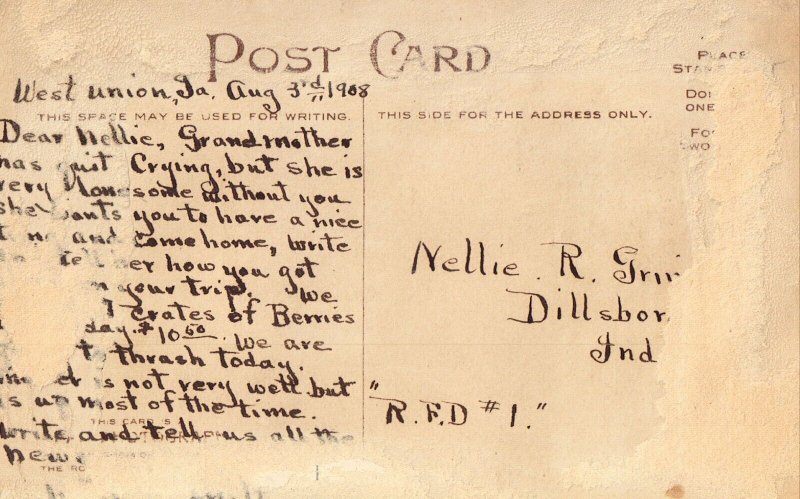 POST CARD
West Union, Ia. Aug 3rd 1908
PLACE
STA
THIS SPACE MAY BE USED FOR WRITING.
THIS SIDE FOR THE ADDRESS ONLY.
ONE
Dear Nellie, Grandmother
has quit Crying, but she is
very lonesome without you
she wants you to have a nice
and come home, write
her how you got
your trip. We
Crates of Berries
day. $10.50. We are
thrash today.
is not very well but
is up most of the time.
Write and tell us all the
news
Nellie R.
Dillsbor
Ind
"R.F.D #1."
THIS CARD
THE